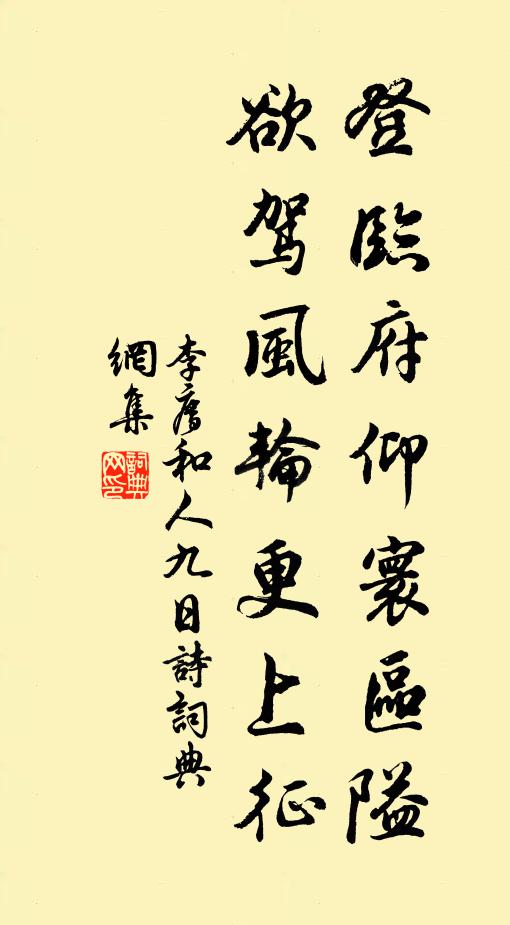 登臨府仰寰區隘
欲駕風輪更上征
李和人九日詩詞典
網集
詞典
网印